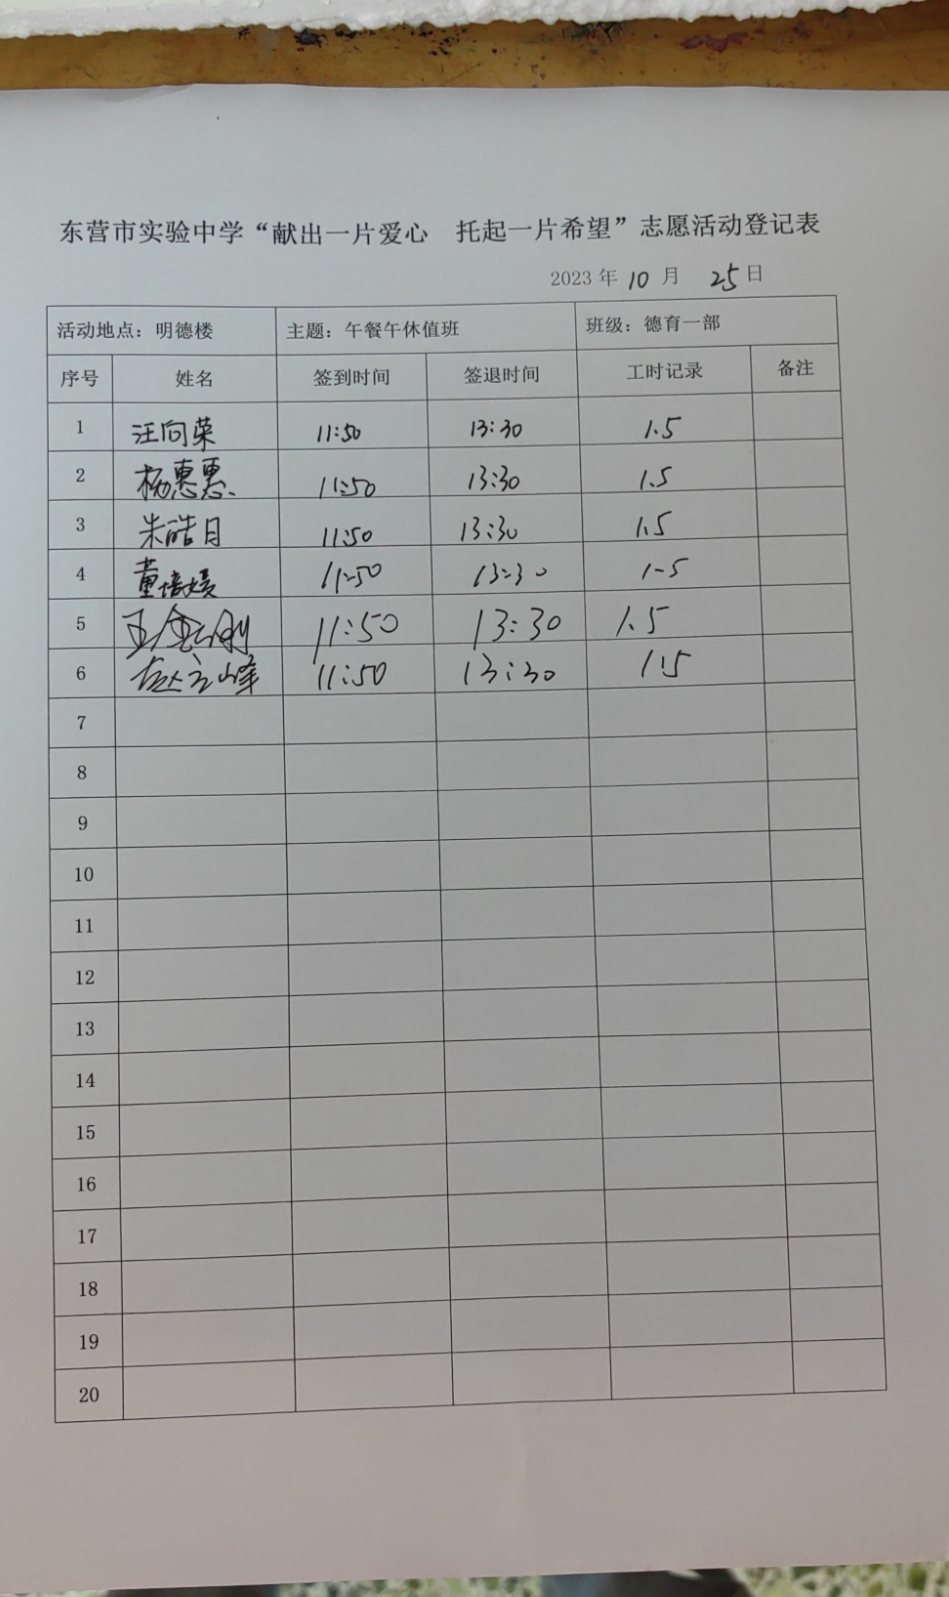 东营市实验中学“献出一片爱心 托起一片希望”志愿活动登记表
2023年 10 月 25 日
活动地点：明德楼 主题：午餐午休值班 班级：德育一部
序号 姓名 签到时间 签退时间 工时记录 备注
1 汪向荣 11:50 13:30 1.5
2 杨惠惠 11:50 13:30 1.5
3 朱皓月 11:50 13:30 1.5
4 董培媛 11:50 13:30 1.5
5 王金刚 11:50 13:30 1.5
6 赵立峰 11:50 13:30 1.5
7
8
9
10
11
12
13
14
15
16
17
18
19
20